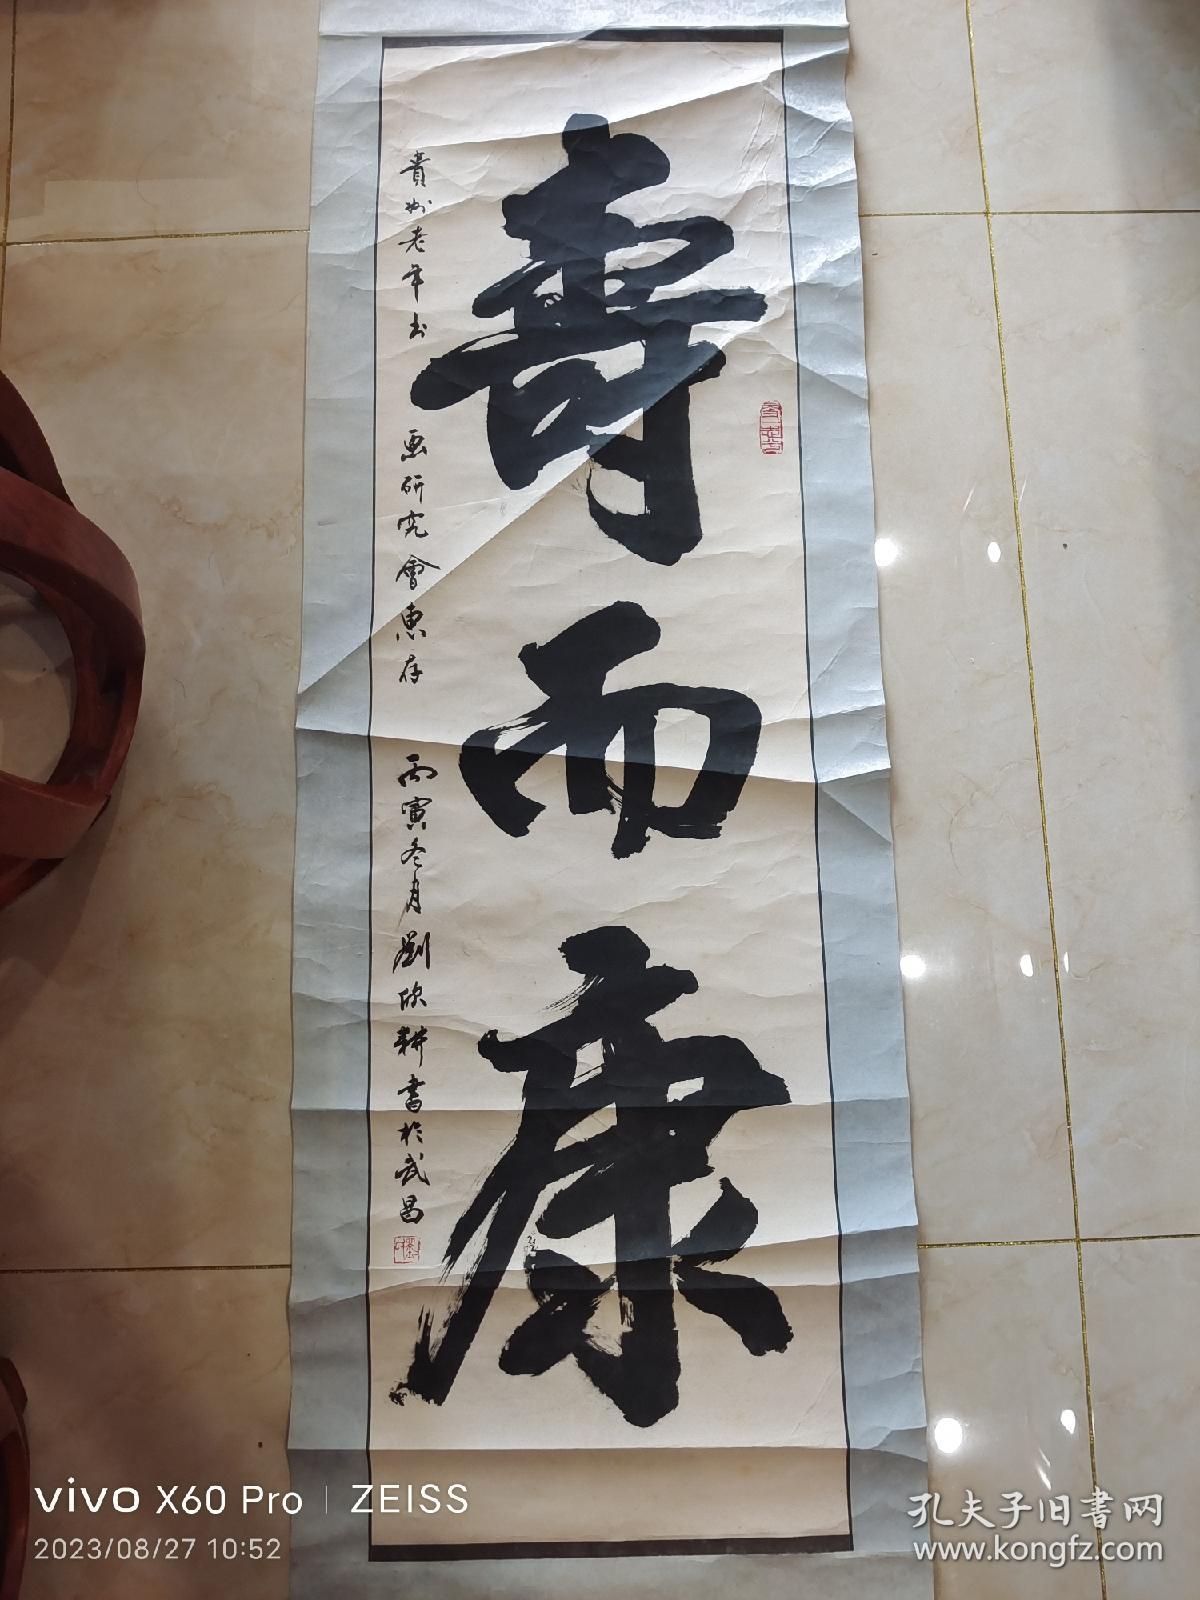 壽而康
貴州老年书画研究會惠存
丙寅冬月劉欣耕書於武昌
vivo X60 Pro | ZEISS
2023/08/27 10:52
孔夫子旧书网
www.kongfz.com